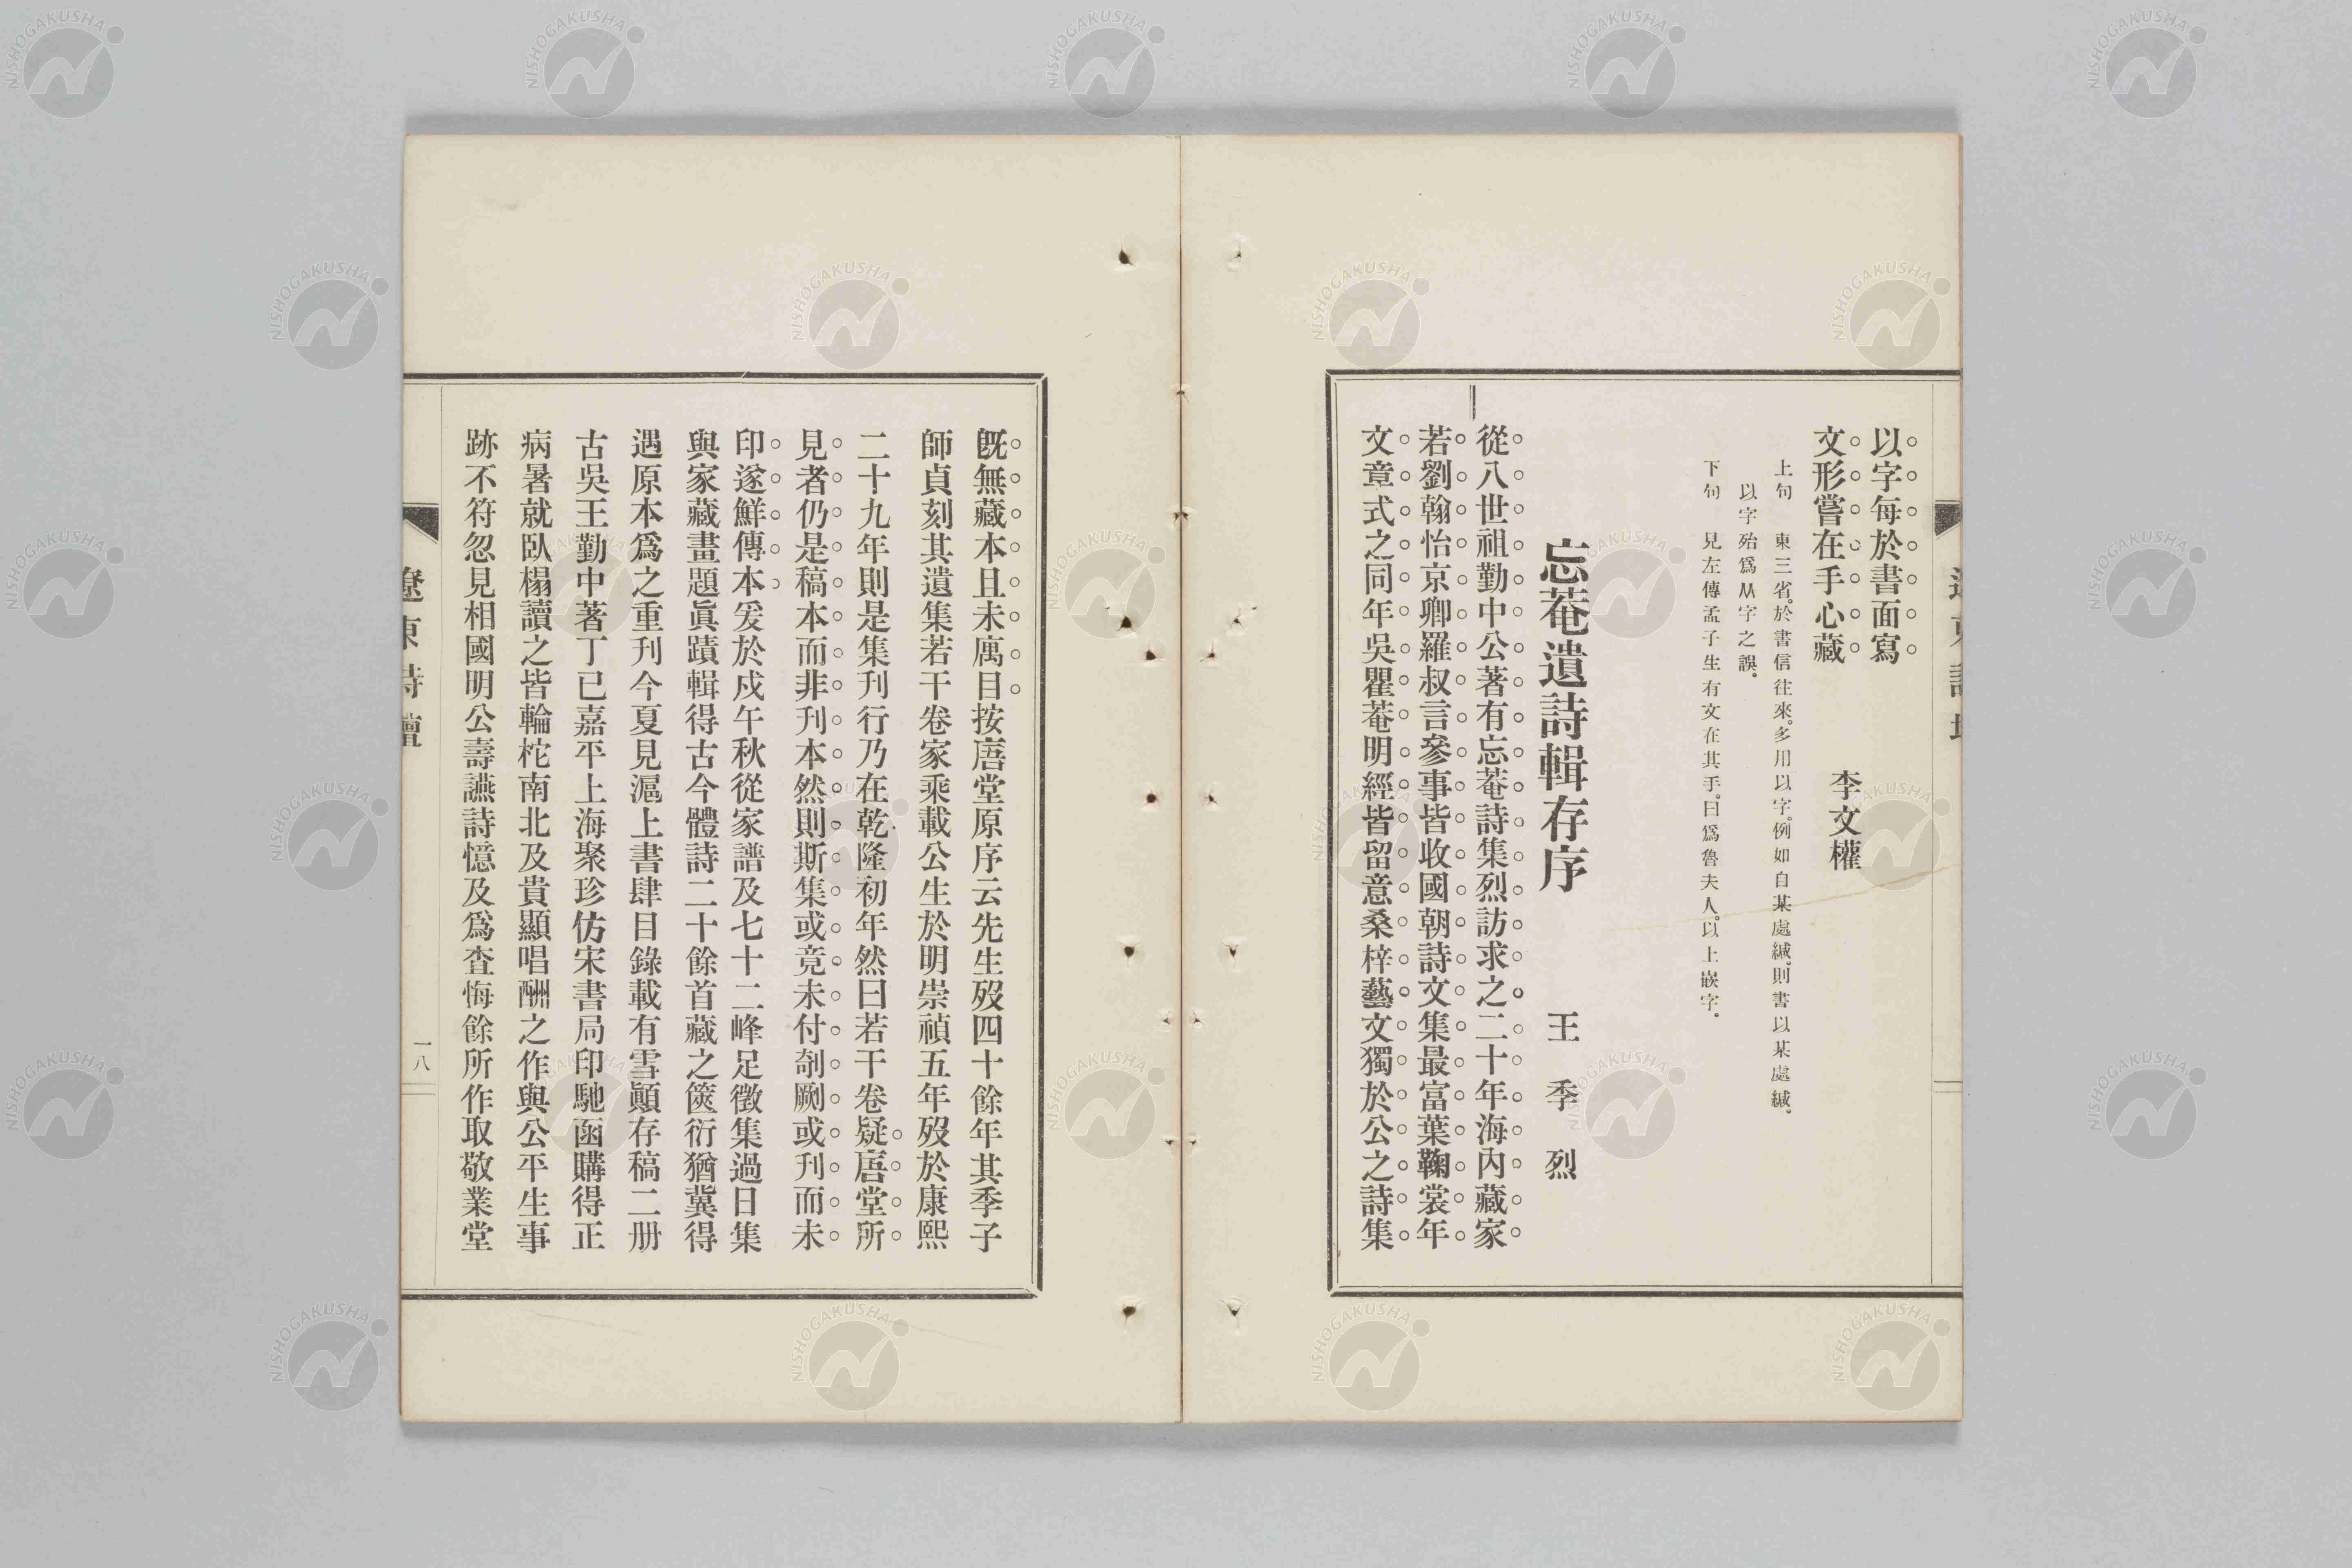 以字每於書面寫
文形嘗在手心藏
李文權
上句 東三省。於書信往來。多用以字。例如自某處緘。則書以某處緘。
以字殆爲从字之誤。
下句 見左傳孟子生有文在其手。曰爲魯夫人。以上嵌字。
忘菴遺詩輯存序
王季烈
從八世祖勤中公著有忘菴詩集烈訪求之二十年海內藏家
若劉翰怡京卿羅叔言參事皆收國朝詩文集最富葉鞠裳年
文章式之同年吳瞿菴明經皆留意桑梓藝文獨於公之詩集
旣無藏本且未寓目按唐堂原序云先生歿四十餘年其季子
師貞刻其遺集若干卷家乘載公生於明崇禎五年歿於康熙
二十九年則是集刊行乃在乾隆初年然曰若干卷疑唐堂所
見者仍是稿本而非刊本然則斯集或竟未付剞劂或刊而未
印遂鮮傳本爰於戍午秋從家譜及七十二峰足徵集過日集
與家藏畫題眞蹟輯得古今體詩二十餘首藏之篋衍猶冀得
遇原本爲之重刊今夏見滬上書肆目錄載有雪顚存稿二册
古吳王勤中著丁已嘉平上海聚珍仿宋書局印馳函購得正
病暑就臥榻讀之皆輪柁南北及貴顯唱酬之作與公平生事
跡不符忽見相國明公壽讌詩憶及爲查悔餘所作取敬業堂
遼東詩壇
一八
NISHOGAKUSHA